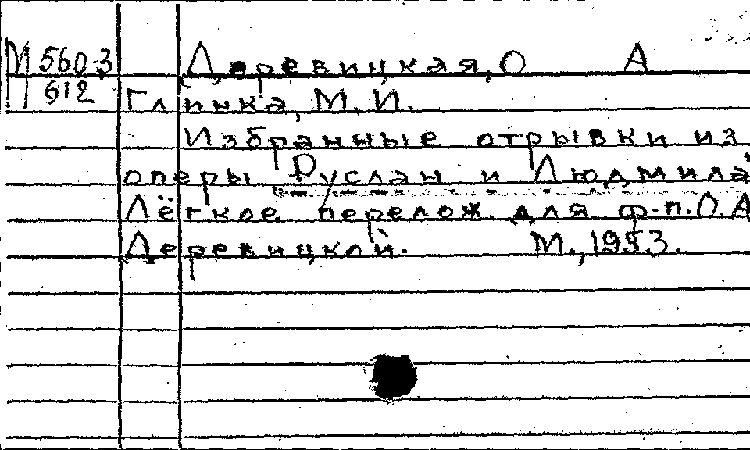 М 560-3
612
Деревицкая, О А
Глинка, М. И.
Избранные отрывки из
оперы Руслан и Людмила
Лёгкое перелож. для ф-п. О. А
Деревицкой. М., 1953.